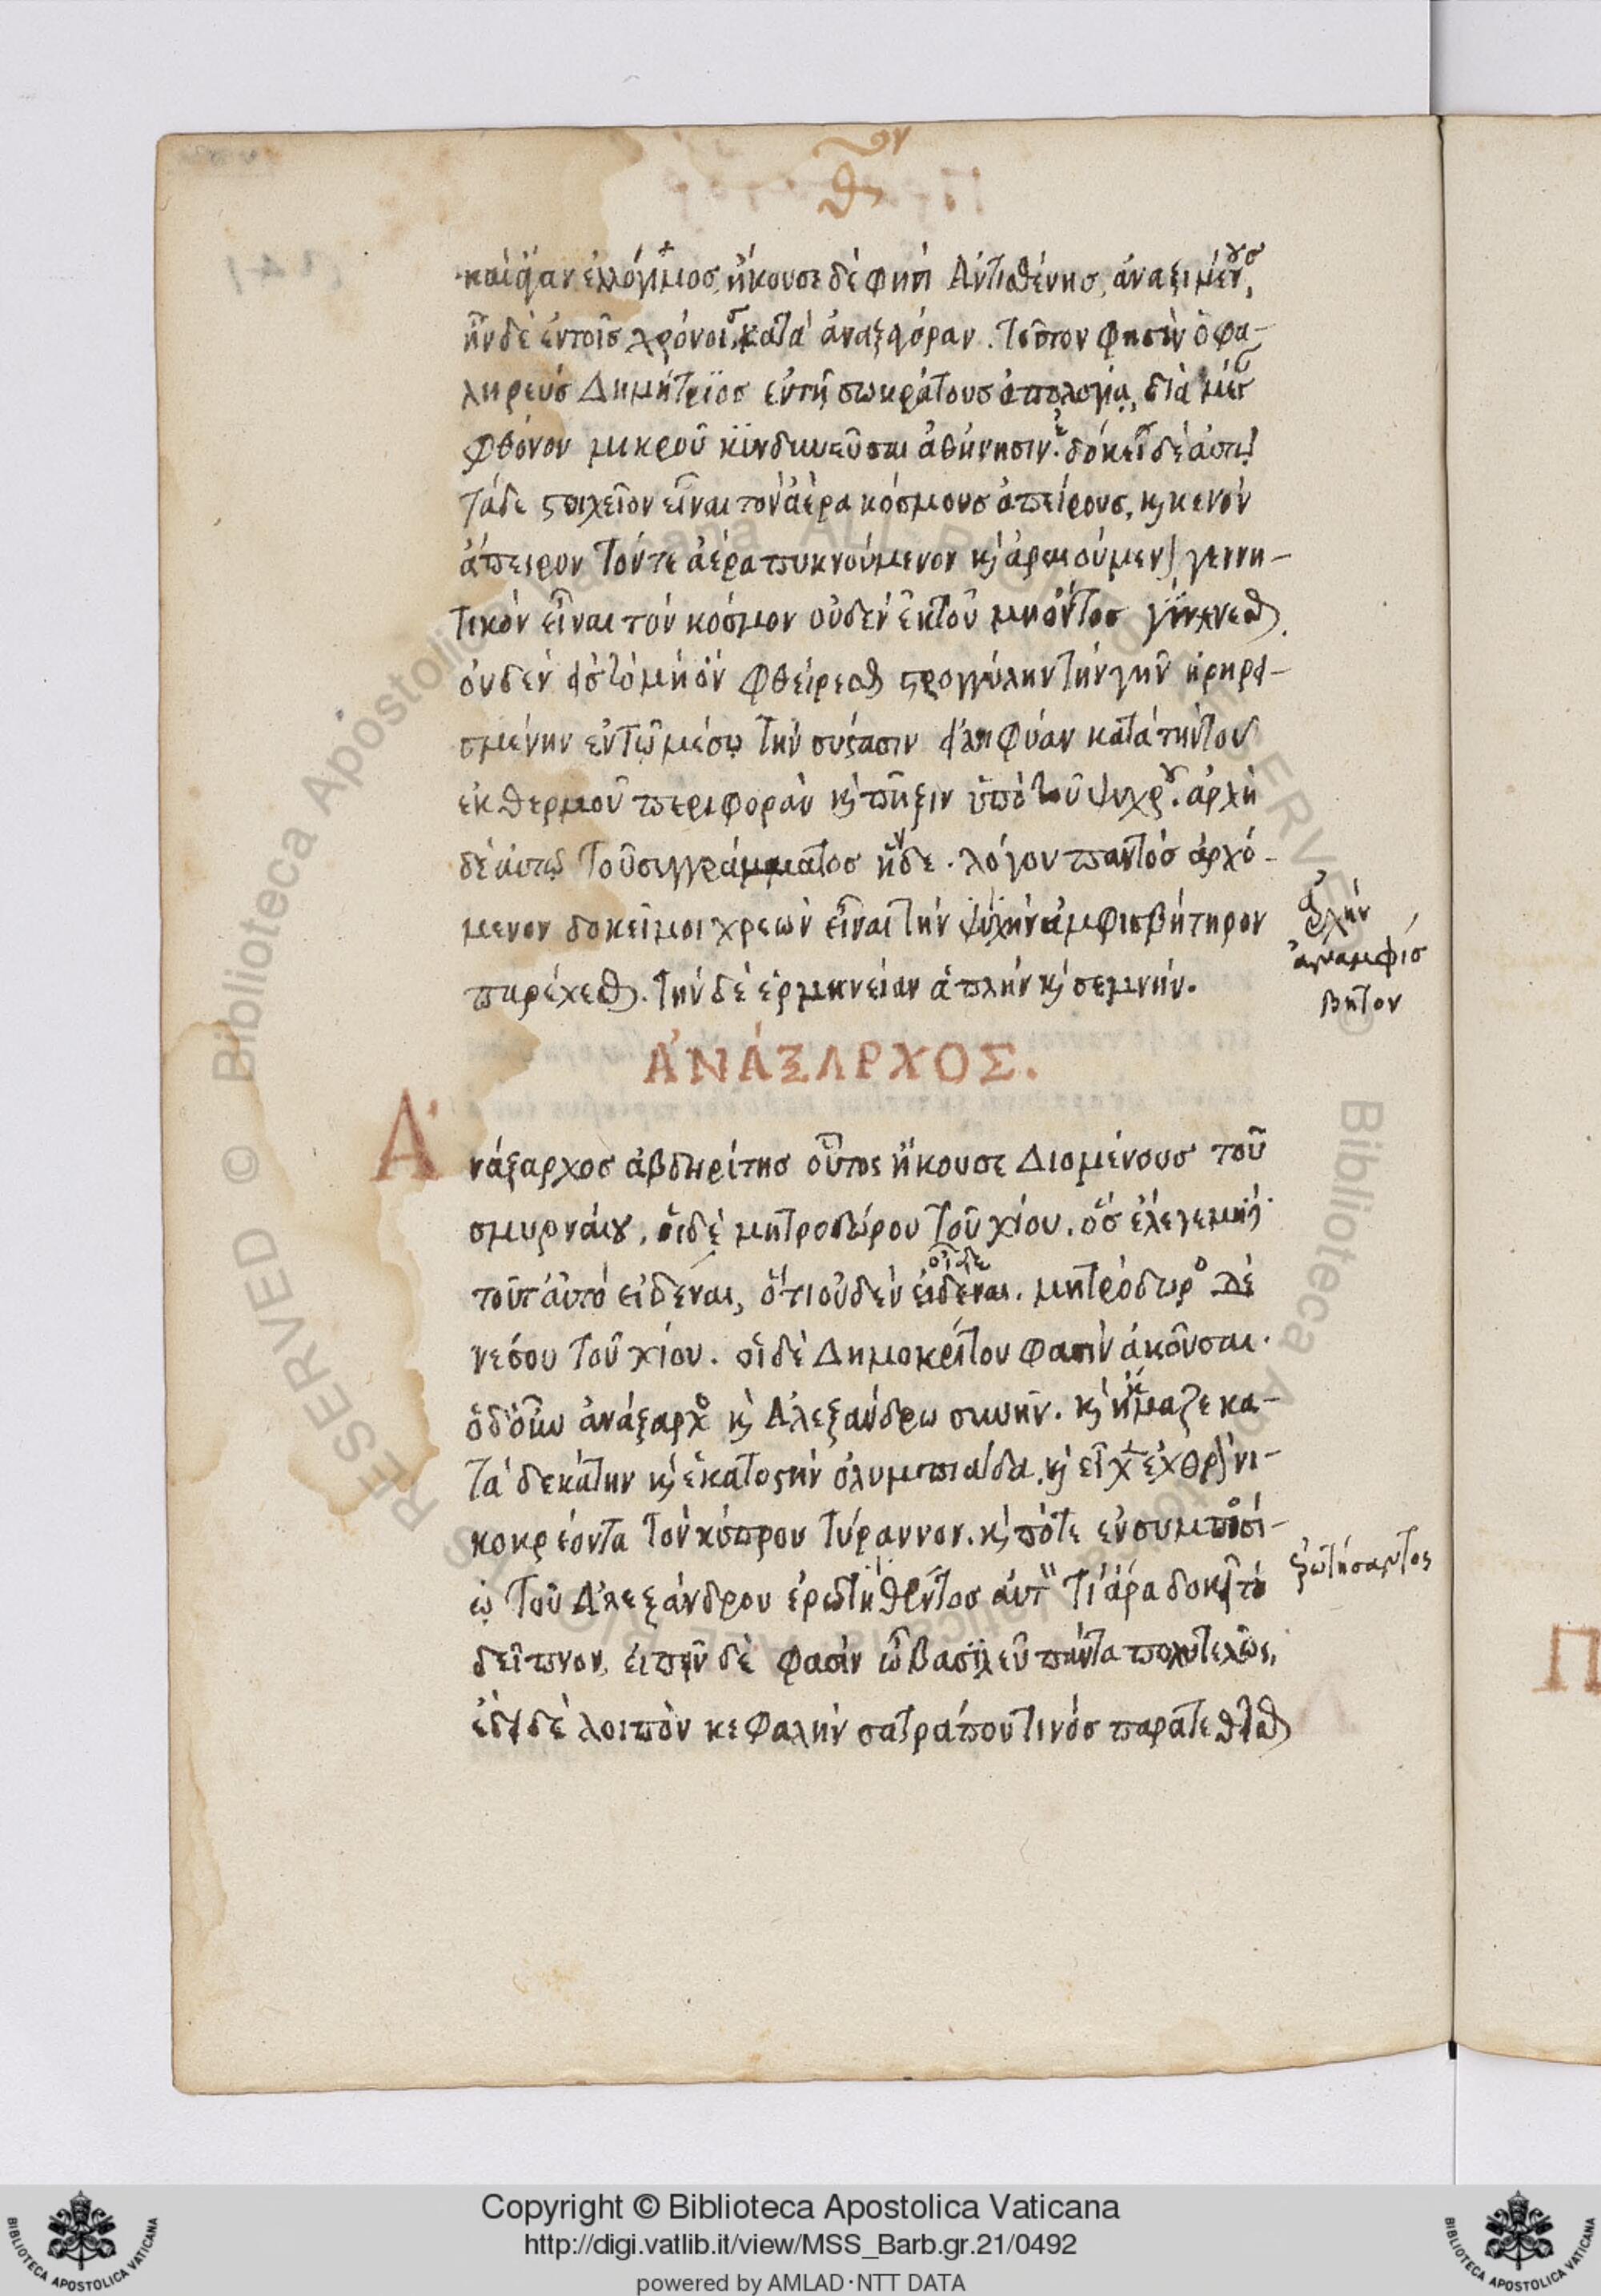 θον
καὶ ἄγαν ἐλλόγιμος, ἤκουσε δέ φησι Ἀντισθένης, ἀναξιμένους,
ἦν δὲ ἐν τοῖς χρόνοις κατὰ ἀναξαγόραν. τοῦτον φησὶν ὁ φα-
ληρεὺς Δημήτριος ἐν τῇ σωκράτους ἀπολογίᾳ, διὰ
φθόνον μικροῦ κινδυνεῦσαι ἀθήνησιν. ἐδόκει δὲ αὐτῷ
τάδε στοιχεῖον εἶναι τὸν ἀέρα κόσμους ἀπείρους, καὶ κενὸν
ἄπειρον τόν τε ἀέρα πυκνούμενον καὶ ἀραιούμενον γεννη-
τικὸν εἶναι τὸν κόσμον οὐδὲν ἐκ τοῦ μὴ ὄντος γίνεσθαι.
οὐδὲν εἰς τὸ μὴ ὂν φθείρεσθαι στρογγύλην τὴν γῆν ἠρηρει-
σμένην ἐν τῷ μέσῳ τὴν σύστασιν εἰληφυῖαν κατὰ τὴν τοῦ
ἐκ θερμοῦ περιφορὰν καὶ πῆξιν ὑπὸ τοῦ ψυχροῦ. ἀρχὴ
δὲ αὐτῷ τοῦ συγγράμματος ἥνδε. λόγου παντὸς ἀρχό-
μενον δοκεῖ μοι χρεὼν εἶναι τὴν ψυχὴν ἀμφισβήτηρον
παρέχεσθαι. τὴν δὲ ἑρμηνείαν ἁπλῆν καὶ σεμνήν.
ἀρχὴν
ἀναμφισ
βητον
ἈΝΆΞΑΡΧΟΣ.
Ἀνάξαρχος ἀβδηρίτης οὗτος ἤκουσε Διομένους τοῦ
σμυρναίου, οἱ δὲ μητροδώρου τοῦ χίου. ὃς ἔλεγε μηδὲ
τοῦτ' αὐτὸ εἰδέναι, ὅτι οὐδὲν εἰδέναι. μητρόδωρος δὲ
οἶδε
νέσου τοῦ χίου. οἱ δὲ Δημοκρίτου φασὶν ἀκοῦσαι.
ὁ δ' οὖν ἀνάξαρχος καὶ Ἀλεξάνδρω συνῆν. καὶ ἤκμαζε κα-
τὰ δεκάτην καὶ ἑκατοστὴν ὀλυμπιάδα. καὶ εἶχεν ἐχθρὸν νι-
κοκρέοντα τὸν κύπρου τύραννον. καὶ ποτὲ ἐν συμποσί-
ῳ τοῦ Ἀλεξάνδρου ἐρωτηθέντος αὐτὸν τί ἄρα δοκεῖ τὸ
ἐρωτήσαντος
δεῖπνον, εἰπεῖν δὲ φασὶν ὦ βασιλεῦ πάντα πολυτελῶς,
ἔδει δὲ λοιπὸν κεφαλὴν σατράπου τινὸς παρατεθεῖσθαι
Copyright © Biblioteca Apostolica Vaticana
http://digi.vatlib.it/view/MSS_Barb.gr.21/0492
powered by AMLAD·NTT DATA